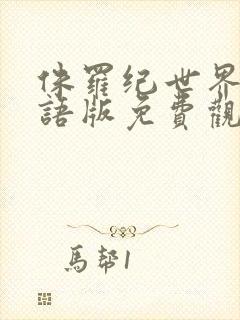 侏羅纪世界
語版免費觀
馬幇1